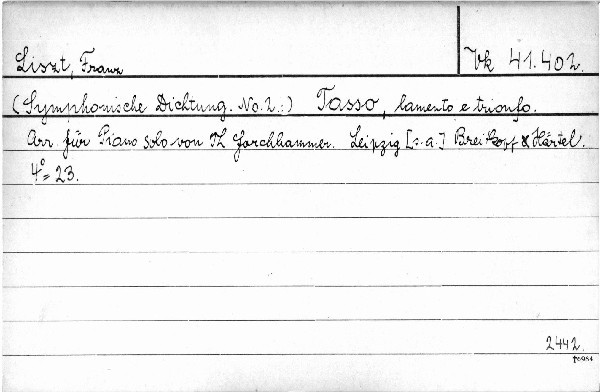 Liszt, Franz
Vk 41.402.
(Symphonische Dichtung. No. 2.:) Tasso, lamento e trionfo.
Arr. für Piano solo von Th Forchhammer. Leipzig [s. a.] Breitkopf & Härtel.
4° = 23.
2442.